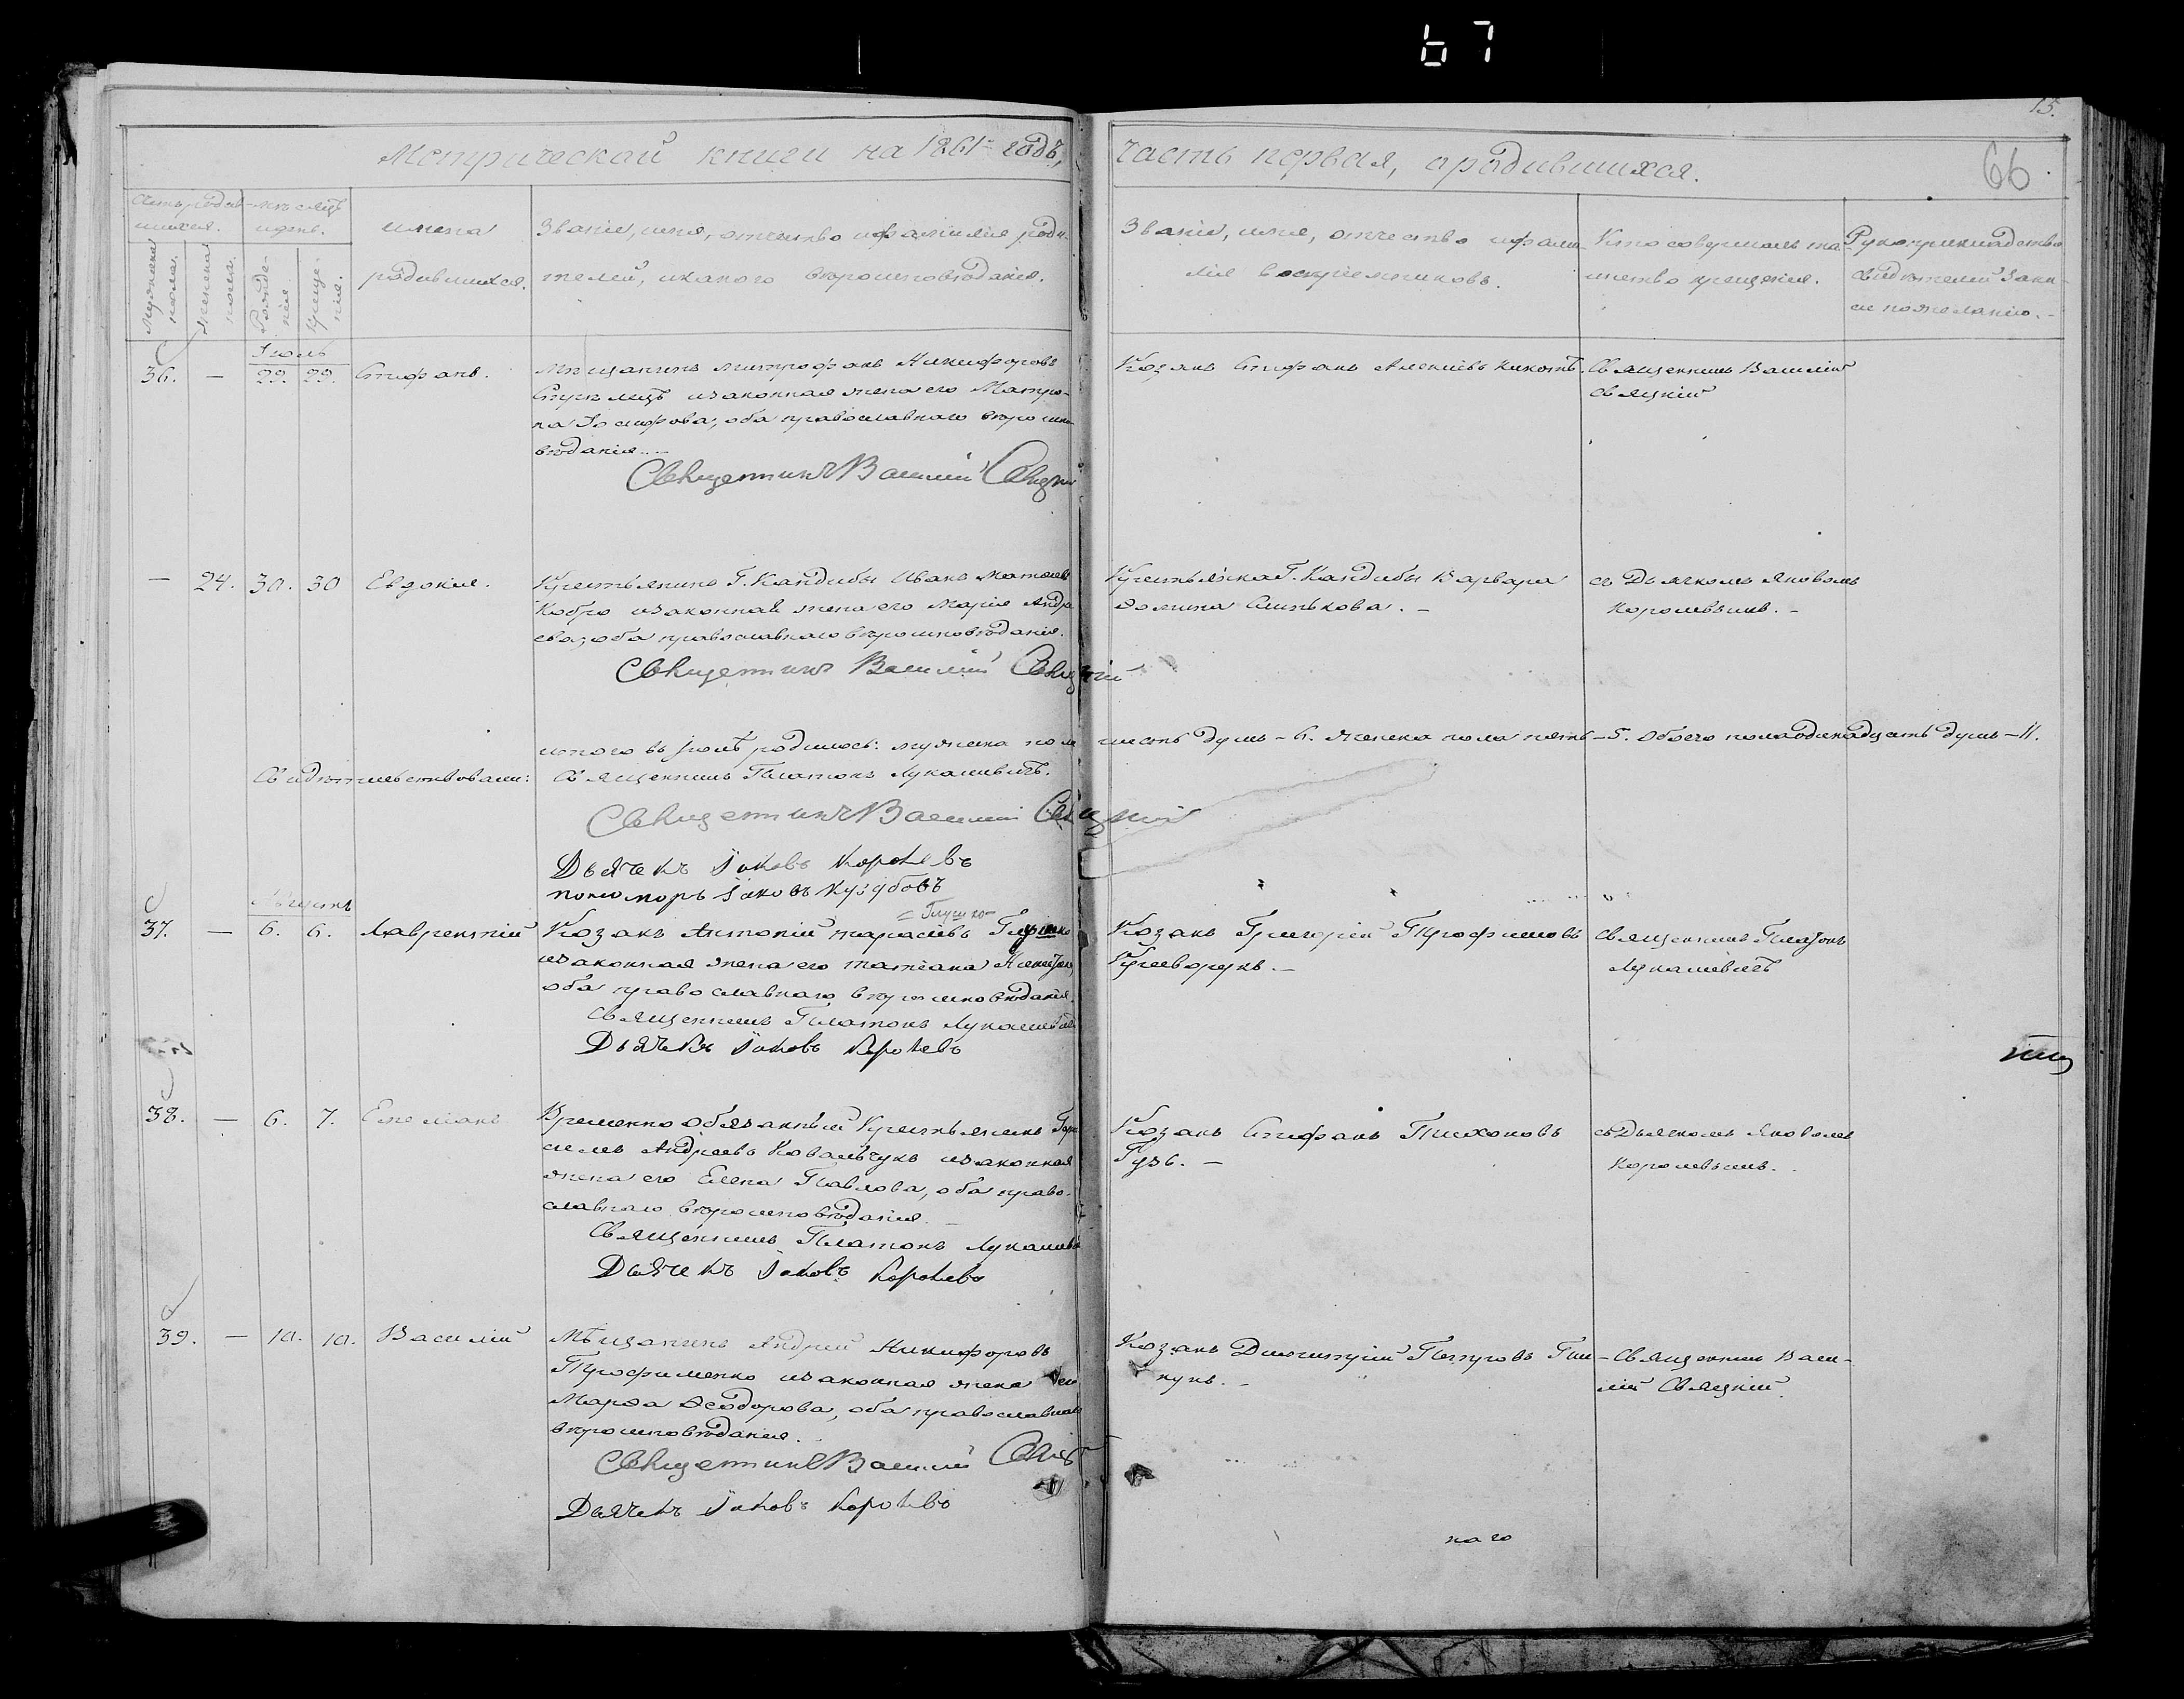 67
15.
66
Метрической книги на 1861й годъ, часть первая, о родившихся.
Счетъ родив-
шихся.
Мужеска пола.
Женска пола.
Мѣсяцъ
и день.
Рожде-
нія.
Креще-
нія.
Имена
родившихся.
Званіе, имя, отчество и фамилія роди-
телей, и какого вѣроисповѣданія.
Званіе, имя, отчество и фами-
лія воспріемниковъ.
Кто совершалъ та-
инство крещенія.
Рукоприкладство
свидѣтелей запи-
си по желанію.
Іюль
36. — 29. 29. Стефанъ.
Мѣщанинъ Митрофанъ Никифоровъ
и законная жена его Матро-
на Іосифова, оба православнаго вѣроиспо
вѣданія.
Священникъ Василій Свяцкій
Козакъ Стефанъ Алексѣевъ
Священникъ Василій
Свяцкій
— 24. 30. 30 Евдокія.
Крестьянинъ Г. Кандибы Иванъ Матвѣевъ
Кобро и законная жена его Марія Андре
ева; оба православнаго вѣроисповѣданія.
Священникъ Василій Свяцкій
Крестьянка Г. Кандибы Варвара
Ѳомина Синькова. —
съ Дьячкомъ Яковомъ
Королевымъ. —
итого въ Іюлѣ родилось: мужеска пола шесть душъ — 6. женска пола пять — 5. Обоего пола одинадцать душъ — 11.
Свидѣтельствовали: Священникъ Платонъ Лукашевичъ.
Священникъ Василій Свяцкій
Дьячекъ Іаковъ Королевъ
пономарь Іаковъ Куздбовъ
Августъ
= Глушко —
37. — 6. 6. Лаврентій
Козакъ Антоній Тарасіевъ Глушко
и законная жена его Татіана
оба православнаго вѣроисповѣданія.
Священникъ Платонъ Лукашевичъ
Дьячекъ Іаковъ Королевъ
Козакъ Григорій Трофимовъ
Криворукъ. —
Священникъ Платонъ
Лукашевичъ
38. — 6. 7. Емеліанъ
Временно обязанный Крестьянинъ Гера
симъ Андреевъ Ковальчукъ и законная
жена его Елена Павлова, оба право-
славнаго вѣроисповѣданія. —
Священникъ Платонъ Лукашеви
Дьячекъ Іаковъ Королевъ
Козакъ Стефанъ Тихоновъ
Гузь. —
съ Дьячкомъ Яковомъ
Королевымъ.
39. — 10. 10. Василій
Мѣщанинъ Андрей Никифоровъ
Трофименко и законная жена его
Марѳа Ѳеодорова, оба православнаго
вѣроисповѣданія.
Священникъ Василій Свяц
Дьячекъ Іаковъ Королевъ
Козакъ Димитрій Петровъ Пи-
кунъ. —
Священникъ Васи-
лій Свяцкій.
наго